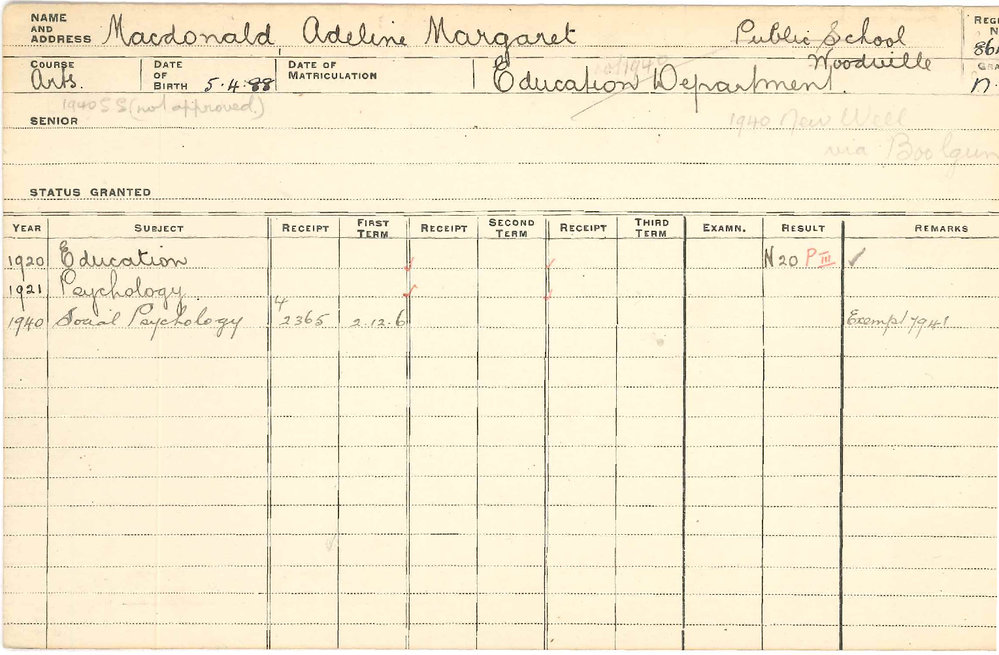 NAME AND ADDRESS Macdonald, Adeline Margaret Public School Woodville
COURSE Arts. DATE OF BIRTH 5.4.88 DATE OF MATRICULATION not 1940 Education Department.
1940 SS (not approved.)
SENIOR 1940 New Well
via
STATUS GRANTED
YEAR SUBJECT RECEIPT FIRST TERM RECEIPT SECOND TERM RECEIPT THIRD TERM EXAMN. RESULT REMARKS
1920 Education ✓ ✓ N20 P III ✓
1921 Psychology ✓ ✓
4
1940 Social Psychology 2365 2.12.6